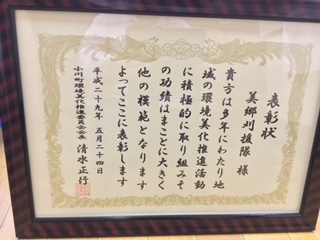 表彰状
美郷刈援隊 様
貴方は多年にわたり地
域の環境美化推進活動
に積極的に取り組みそ
の功績はまことに大きく
他の模範となります
よってここに表彰します
平成二十九年 五月二十四日
小川町環境美化推進委員会会長 清水正行